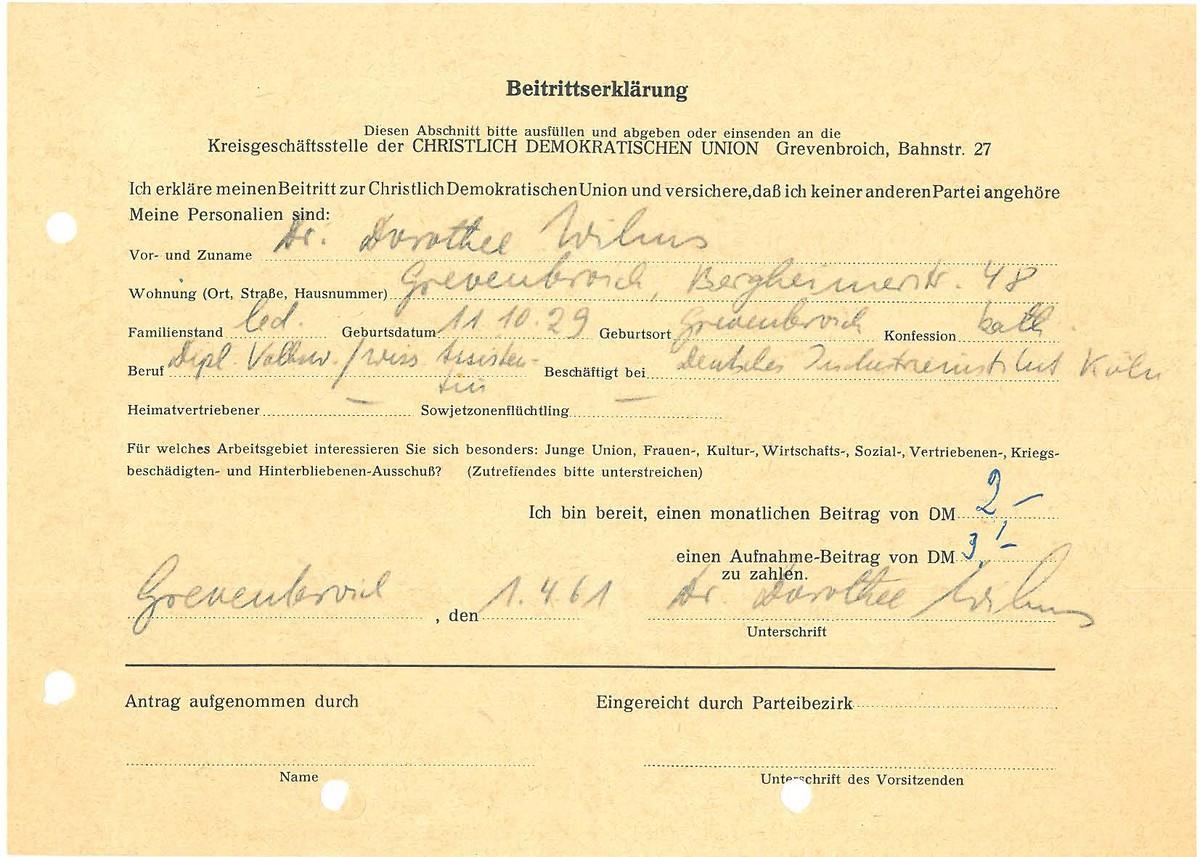 Beitrittserklärung
Diesen Abschnitt bitte ausfüllen und abgeben oder einsenden an die
Kreisgeschäftsstelle der CHRISTLICH DEMOKRATISCHEN UNION Grevenbroich, Bahnstr. 27
Ich erkläre meinen Beitritt zur Christlich Demokratischen Union und versichere, daß ich keiner anderen Partei angehöre
Meine Personalien sind:
Vor- und Zuname Dr. Dorothee Wilms
Wohnung (Ort, Straße, Hausnummer) Grevenbroich, Bergheimerstr. 48
Familienstand led. Geburtsdatum 11.10.29 Geburtsort Grevenbroich Konfession kath.
Beruf Dipl. Volksw. / wiss Assisten- Beschäftigt bei Deutsches Industrieinstitut Köln
tin
Heimatvertriebener — Sowjetzonenflüchtling —
Für welches Arbeitsgebiet interessieren Sie sich besonders: Junge Union, Frauen-, Kultur-, Wirtschafts-, Sozial-, Vertriebenen-, Kriegs-
beschädigten- und Hinterbliebenen-Ausschuß? (Zutreffendes bitte unterstreichen)
Ich bin bereit, einen monatlichen Beitrag von DM 2,-
einen Aufnahme-Beitrag von DM 3,-
zu zahlen.
Grevenbroich, den 1.4.61 Dr. Dorothee Wilms
Unterschrift
Antrag aufgenommen durch Eingereicht durch Parteibezirk
Name Unterschrift des Vorsitzenden